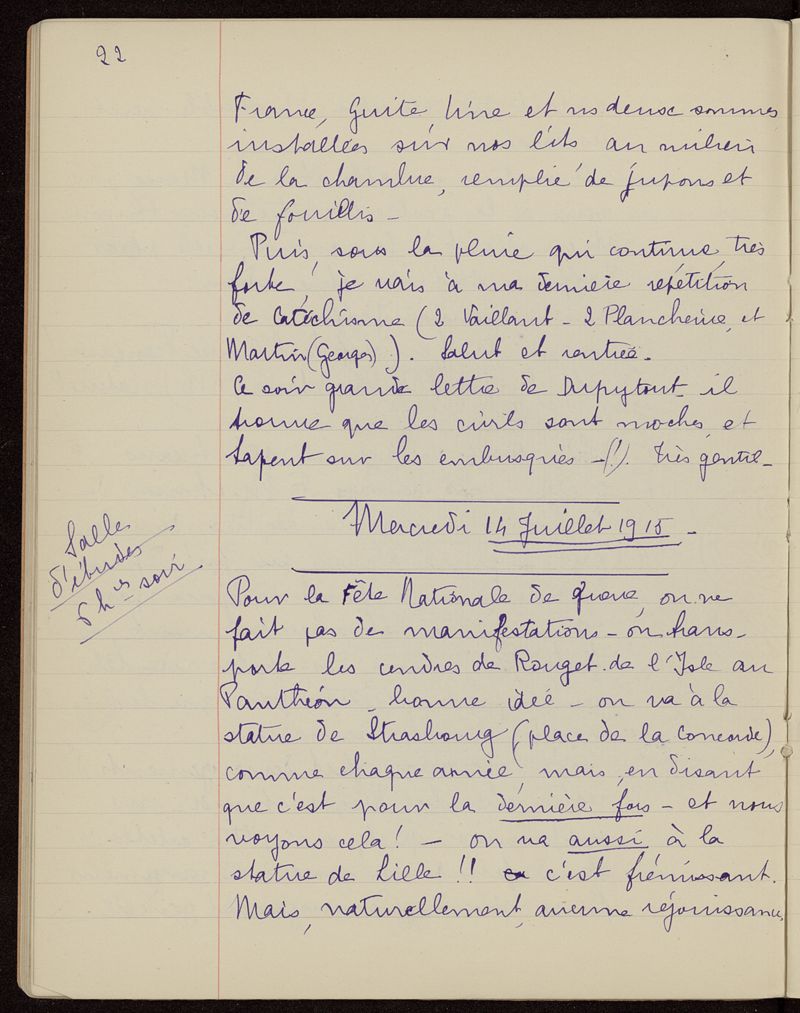 22
France, Guite, Line et ns deux sommes
installées sur nos lits au milieu
de la chambre, remplie de jupons et
de fouillis -
Puis, sous la pluie qui continue, très
forte, je vais à ma dernière répétition
de catéchisme (2 Vaillant - 2 Plancheine, et
Martin (Georges)). Salut et rentrée.
Ce soir grande lettre de Dupytout - il
trouve que les civils sont moches, et
tapent sur les embusqués - (!). Très gentil -
Mercredi 14 Juillet 1915 -
Salle
d'études
6 h rs soir
Pour la Fête Nationale de guerre, on ne
fait pas de manifestations - on trans-
porte les cendres de Rouget de l'Isle au
Panthéon - bonne idée - on va à la
statue de Strasbourg (place de la Concorde),
comme chaque année, mais, en disant
que c'est pour la dernière fois - et nous
voyons cela ! - on va aussi à la
statue de Lille !! c'est frémissant.
Mais, naturellement, aucune réjouissance,